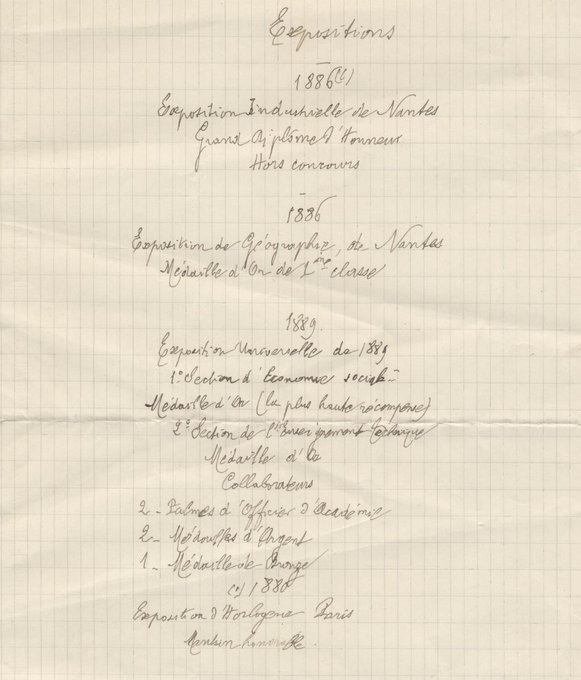 Expositions
1886 (1)
Exposition Industrielle de Nantes
Grand Diplôme d'Honneur
Hors concours
1886
Exposition de Géographie, de Nantes
Médaille d'Or de 1ère classe
1889.
Exposition Universelle de 1889
1° Section d'Economie sociale
Médaille d'Or (la plus haute récompense)
2° Section de l'Enseignement Technique
Médaille d'Or
Collaborateurs
2 - Palmes d'Officier d'Académie
2 - Médailles d'Argent
1 - Médaille de Bronze
(1) 1880
Exposition d'Horlogerie Paris
Mention honorable.